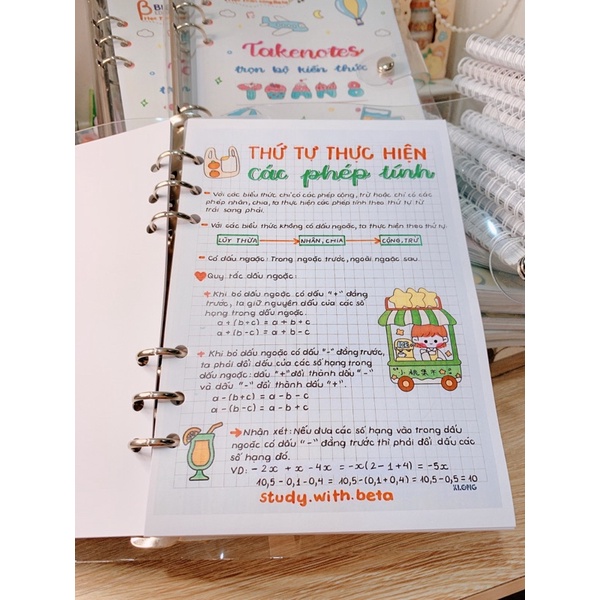 Takenotes
trọn bộ kiến thức
TOÁN 8
THỨ TỰ THỰC HIỆN
Các phép tính
- Với các biểu thức chỉ có các phép cộng, trừ hoặc chỉ có các
phép nhân, chia, ta thực hiện các phép tính theo thứ tự từ
trái sang phải.
- Với các biểu thức không có dấu ngoặc, ta thực hiện theo thứ tự:
LŨY THỪA → NHÂN, CHIA → CỘNG, TRỪ
- Có dấu ngoặc: Trong ngoặc trước, ngoài ngoặc sau.
Quy tắc dấu ngoặc:
+ Khi bỏ dấu ngoặc có dấu "+" đằng
trước, ta giữ nguyên dấu của các số
hạng trong dấu ngoặc.
a + (b+c) = a + b + c
a + (b-c) = a + b - c
+ Khi bỏ dấu ngoặc có dấu "-" đằng trước,
ta phải đổi dấu của các số hạng trong
dấu ngoặc: dấu "+" đổi thành dấu "-"
và dấu "-" đổi thành dấu "+".
a - (b+c) = a - b - c
a - (b-c) = a - b + c
→ Nhận xét: Nếu đưa các số hạng vào trong dấu
ngoặc có dấu "-" đằng trước thì phải đổi dấu các
số hạng đó.
VD: - 2x + x - 4x = -x(2 - 1 + 4) = -5x
10,5 - 0,1 - 0,4 = 10,5 - (0,1 + 0,4) = 10,5 - 0,5 = 10
study.with.beta